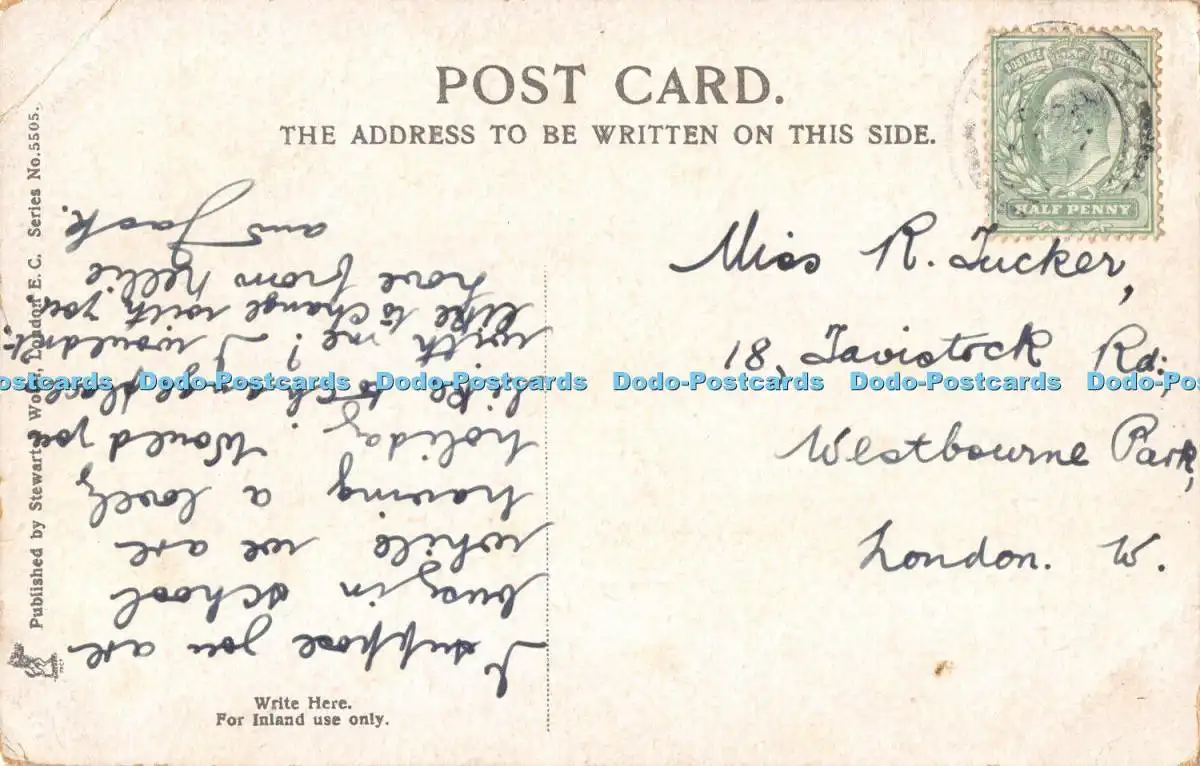 POST CARD.
THE ADDRESS TO BE WRITTEN ON THIS SIDE.
HALF PENNY
Miss R. Tucker,
18, Tavistock Rd.,
Westbourne Park,
London. W.
I suppose you are
busy in school
while we are
having a lovely
holiday. Would you
like to change places
with me? I wouldn't
like to change with you.
Love from Nellie
and Jack.
Write Here.
For Inland use only.
Published by Stewart & Woolf, London E. C. Series No. 5505.
Dodo-Postcards Dodo-Postcards Dodo-Postcards Dodo-Postcards Dodo-Postcards